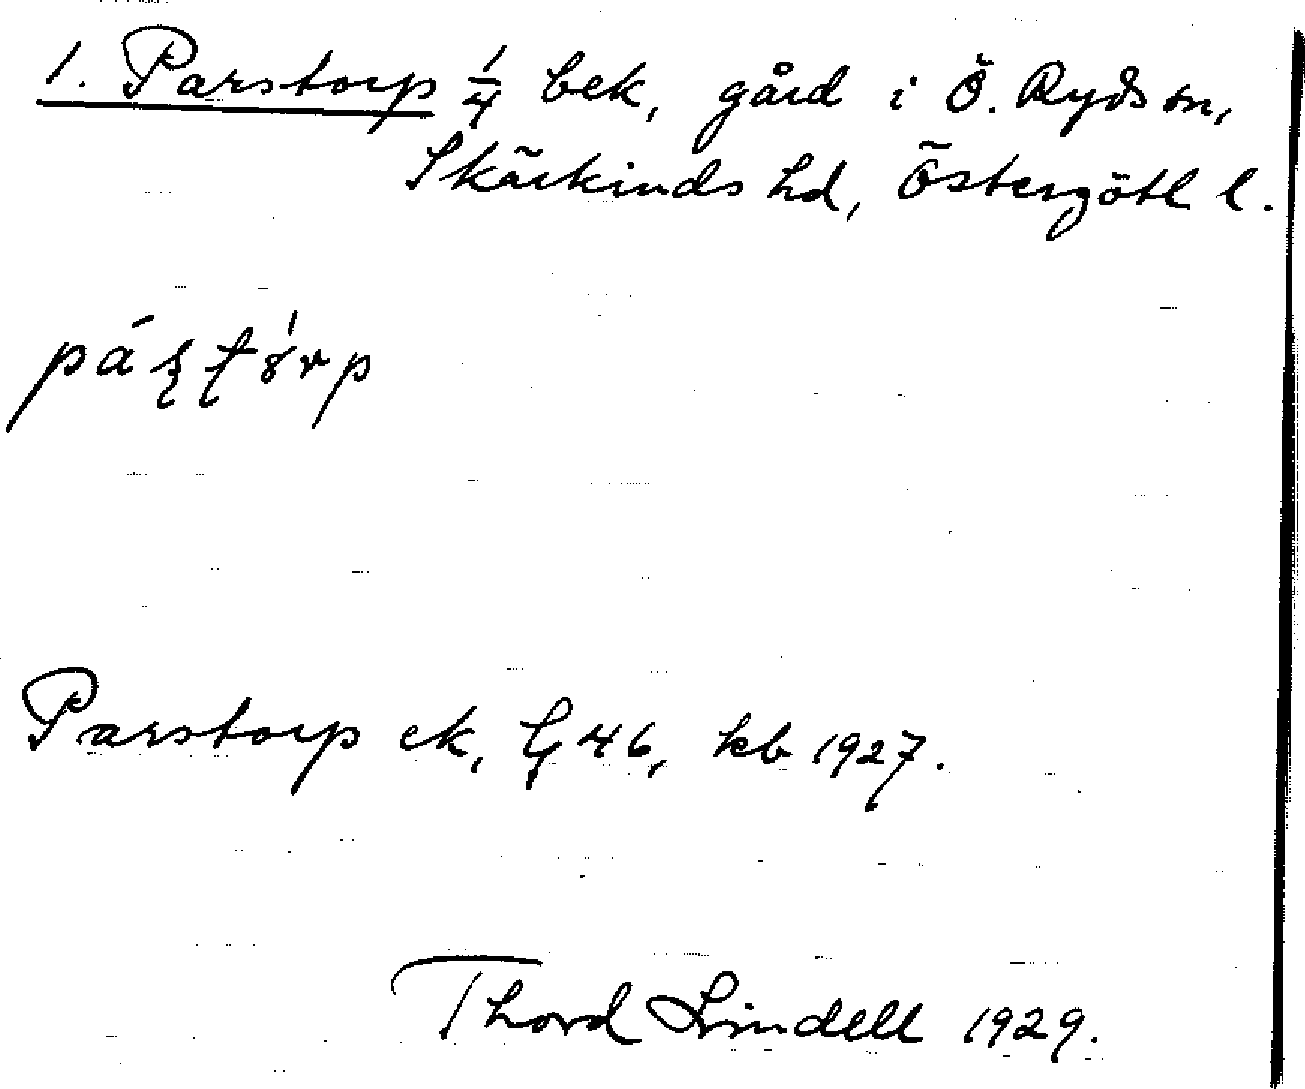 1. Parstorp 1/4 bek, gård i Ö. Ryds sn,
Skärkinds hd, Östergötl l.
Parstorp ek, Gj 46, kb 1927.
Thord Lindell 1929.